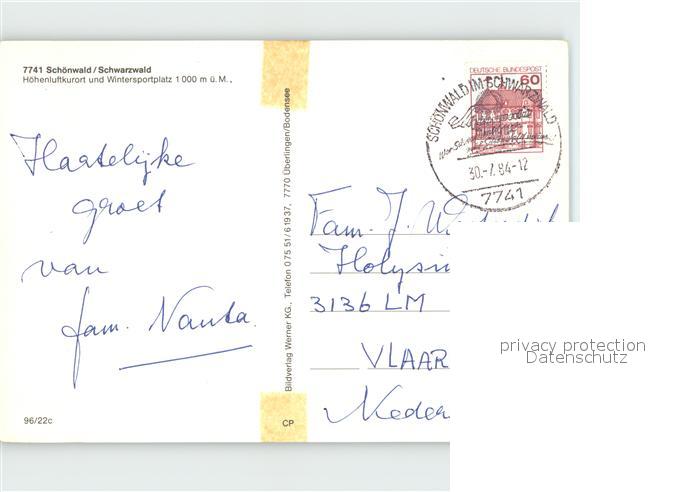 7741 Schönwald/Schwarzwald
Höhenluftkurort und Wintersportplatz 1000 m ü. M.,
Hartelijke
groet
van
fam. Nanta.
96/22c
Bildverlag Werner KG., Telefon 07551/61937, 7770 Überlingen/Bodensee
CP
DEUTSCHE BUNDESPOST
60
SCHÖNWALD IM SCHWARZWALD
30.-7.84-12
7741
Fam. J.
3136 LM
VLAAR
Neder
privacy protection
Datenschutz